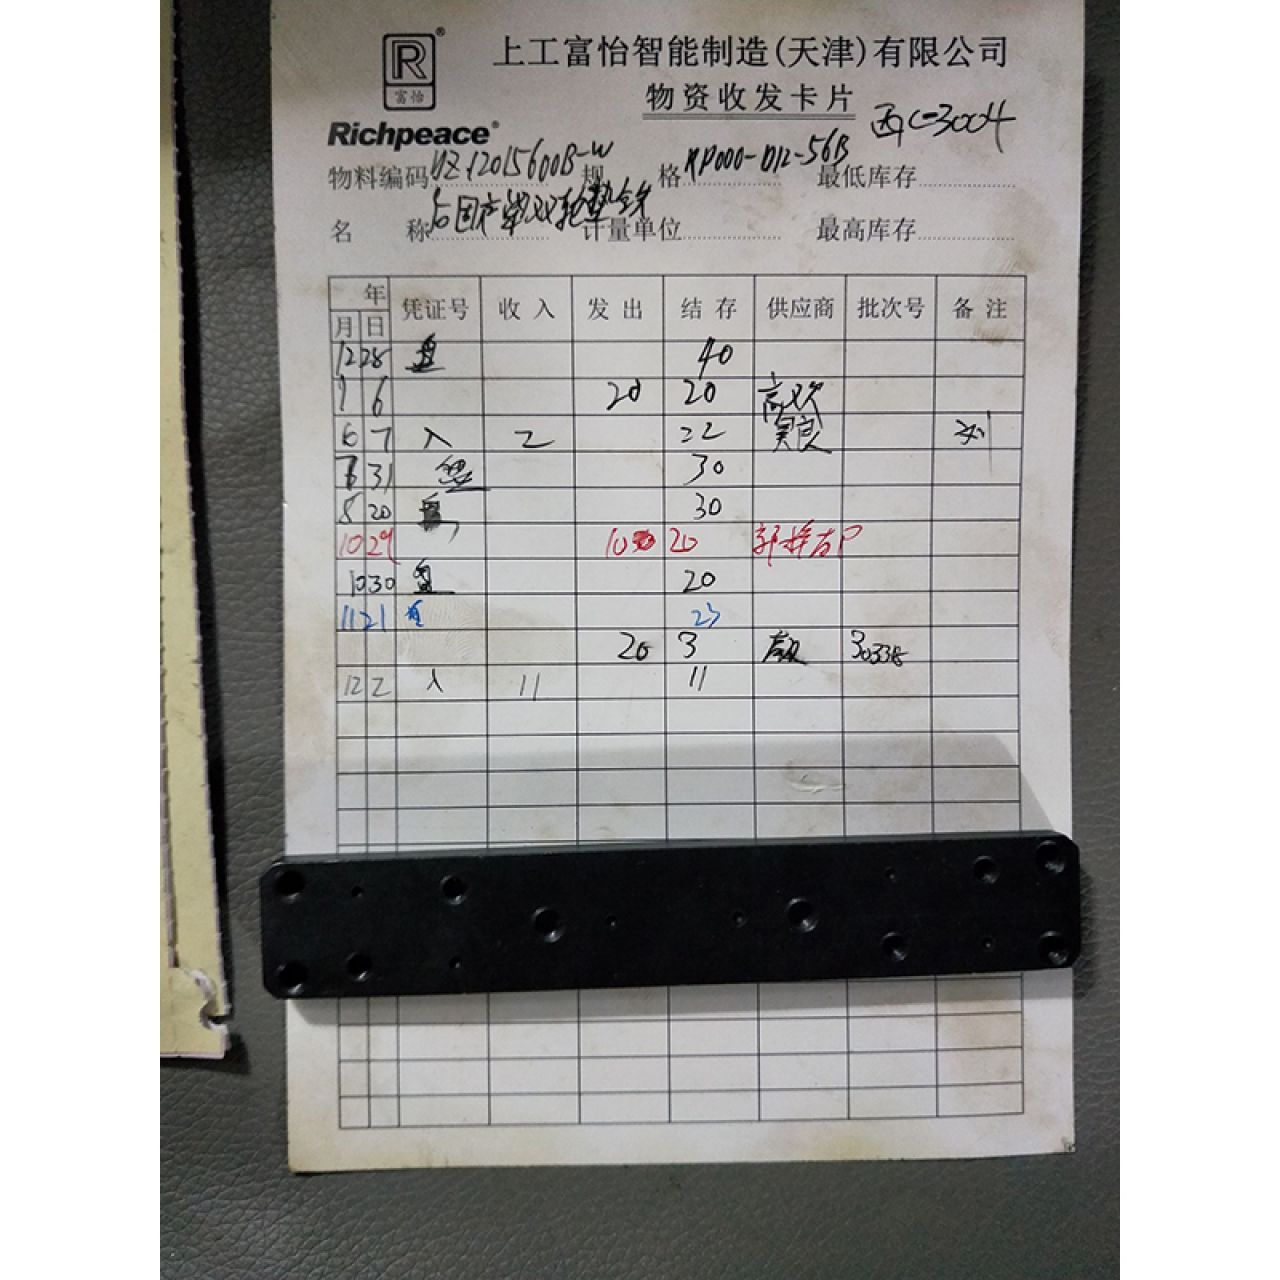 R®
富怡
Richpeace®
上工富怡智能制造(天津)有限公司
物资收发卡片
西C-3004
物料编码 规 格 XP000-D12-56B 最低库存
名 称 计量单位 最高库存
年 凭证号 收入 发出 结存 供应商 批次号 备注
月 日
12 28 盘 40
1 6 20 20 高欢
6 7 入 2 22 吴良
7 31 盘 30
8 20 盘 30
10 29 10 20
10 30 盘 20
11 21 盘 23
20 3 30338
12 2 入 11 11